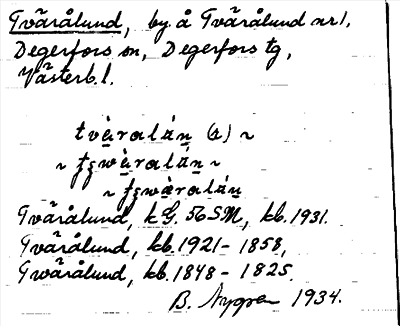 Tvärålund, by å Tvärålund nr 1,
Degerfors sn, Degerfors tg,
Västerb. l.
tvàralán (2) ~
~ ʈʂwàralán ~
~ ʈʂwæ̀ralán
Tvärålund, k G. 56 SM, kb. 1931.
Tvärålund, kb. 1921 - 1858,
Twärålund, kb. 1848 - 1825.
B. Nygren 1934.